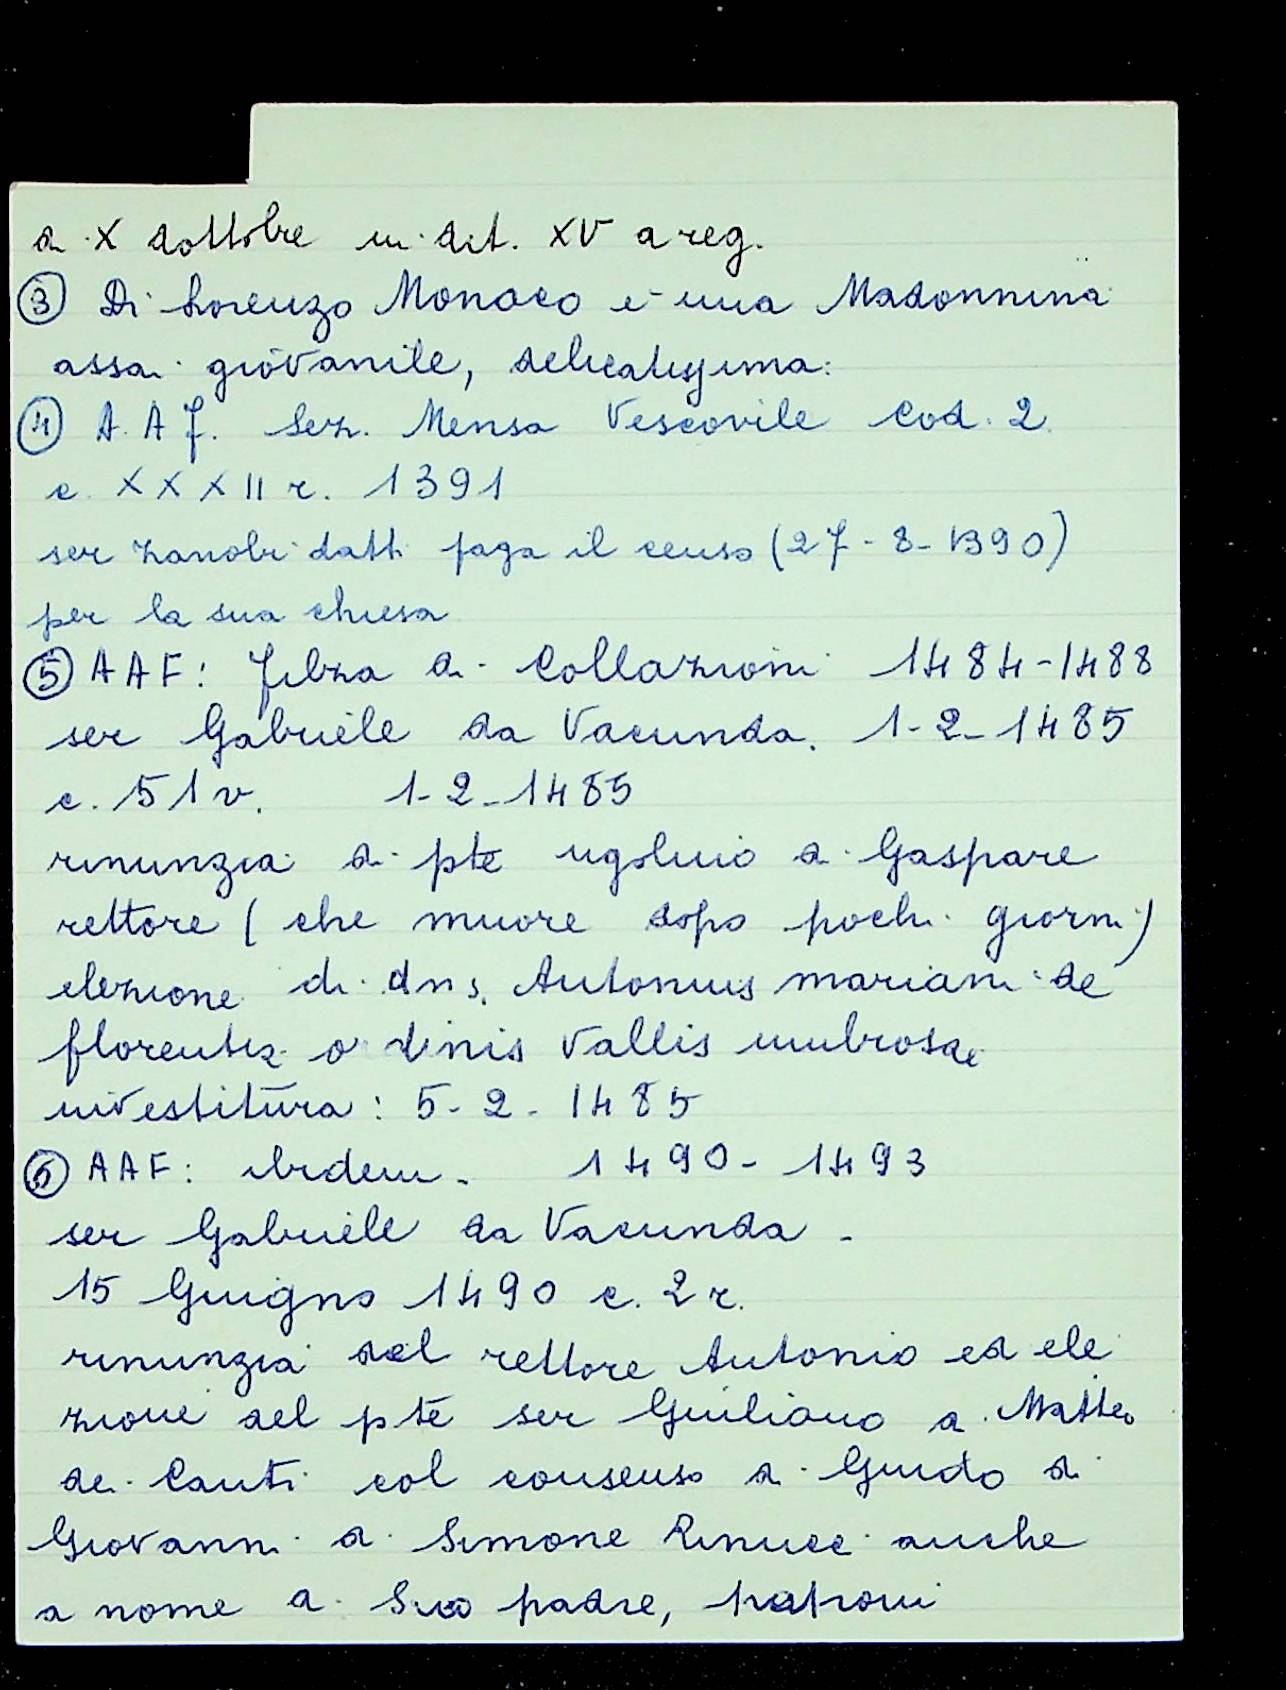 di X dottobre in dit. XV a reg.
③ Di Lorenzo Monaco è una Madonnina
assai giovanile, delicatissima:
④ A. A F. Sez. Mensa Vescovile Cod. 2.
c. XXXII r. 1391
ser Zanobi datti paga il censo (27-8-1390)
per la sua chiesa
⑤ AAF: filza di Collazioni 1484-1488
ser Gabriele da Vacunda. 1-2-1485
c. 51 v. 1-2-1485
rinunzia di pte ugolino di Gaspare
rettore (che muore dopo pochi giorni)
elezione di dns. Antonius mariani de
florentiz ordinis Vallis umbrosae
investitura: 5-2-1485
⑥ AAF: ibidem. 1490-1493
ser Gabriele da Vacunda -
15 Giugno 1490 c. 2 r.
rinunzia del rettore Antonio ed ele
zione del pte ser Giuliano di Matteo
dei Canti col consenso di Guido di
Giovanni di Simone Rinucci anche
a nome di Suo padre, patroni